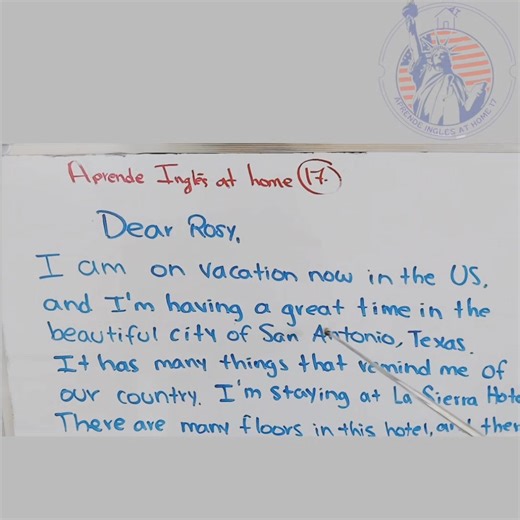 APRENDE INGLES AT HOME 17
Aprende Inglés at home 17.
Dear Rosy,
I am on vacation now in the US,
and I'm having a great time in the
beautiful city of San Antonio, Texas.
It has many things that remind me of
our country. I'm staying at La Sierra Hote
There are many floors in this hotel, and ther